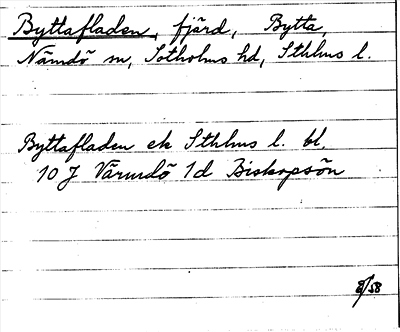 Byttafladen, fjärd, Bytta,
Nämdö sn, Sotholms hd, Sthlms l.
Byttafladen ek Sthlms l. bl.
10 J Värmdö 1d Biskopsön
8/58